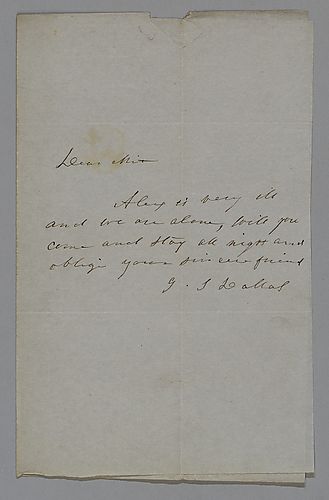 Dear Mit
Alex is very ill
and we are alone, Will you
come and stay all night and
oblige your sincere friend
G. S Dallas